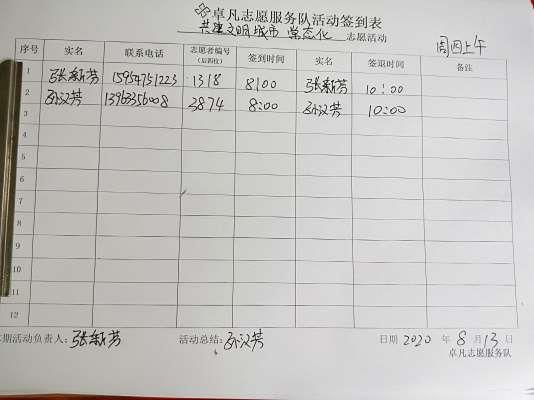 卓凡志愿服务队活动签到表
共建文明城市 常态化 志愿活动 周四上午
序号 实名 联系电话 志愿者编号（后四位） 签到时间 实名 签退时间 备注
1 张新芳 15954751223 1318 8:00 张新芳 10:00
2 孙汉芳 13963356008 3874 8:00 孙汉芳 10:00
3
4
5
6
7
8
9
10
11
12
期活动负责人：张新芳 活动总结：孙汉芳 日期 2020 年 8 月 13 日
卓凡志愿服务队